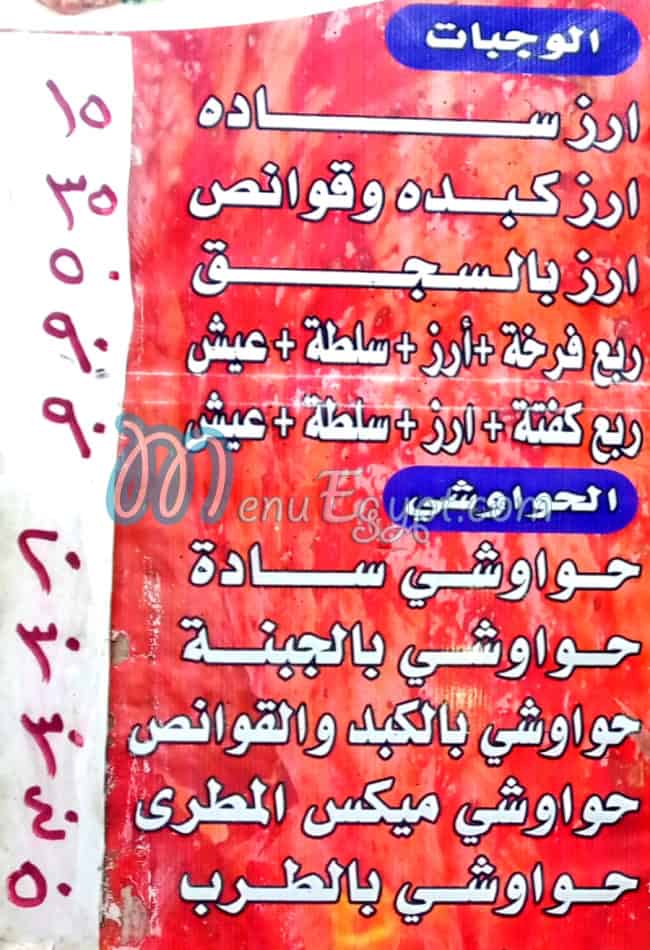 الوجبات
ارز ساده ١٥
ارز كبده وقوانص ٣٥
ارز بالسجق ٥٠
ربع فرخة +أرز + سلطة + عيش ٩٠
ربع كفتة + ارز + سلطة + عيش ٩٠
MenuEgypt.com
الحواوشي
حواوشي سادة ٢٠
حواوشي بالجبنة
حواوشي بالكبد والقوانص
حواوشي ميكس المطرى
حواوشي بالطرب ٥٠